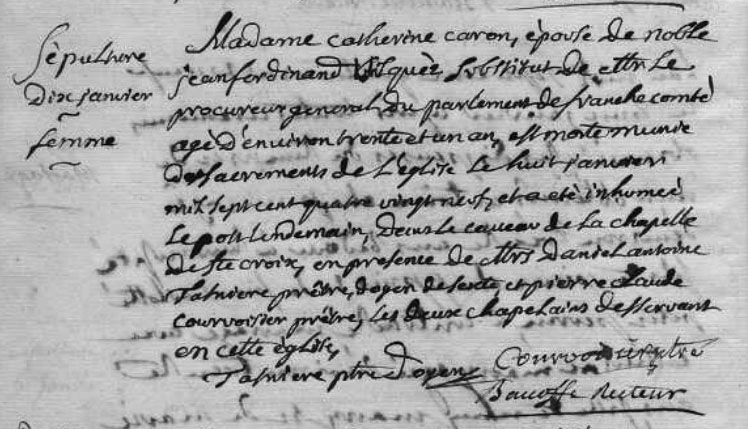 Sépulture
Dix janvier
femme
Madame catherine caron, épouse de noble
jean ferdinand Vilquez, Substitut de Mr Le
procureur general du parlement de franche comté
agé d'environ trente et un an, est morte munie
des sacrements de L'église Le huit janvier
mil sept cent quatre vingt neuf, et a eté inhumeé
Le post Lendemain, Dans Le caveau de La chapelle
de Ste croix, en presence de Mrs Daniel antoine
prêtre, doyen de et pierre claude
courvoisier prêtre, Les deux chapelains desservant
en cette église,
ptre Doyen
Courvoisier ptre
Recteur